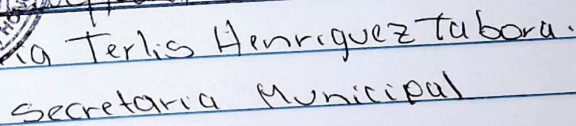 Terlis Henriquez Tabora.
Secretaria Municipal